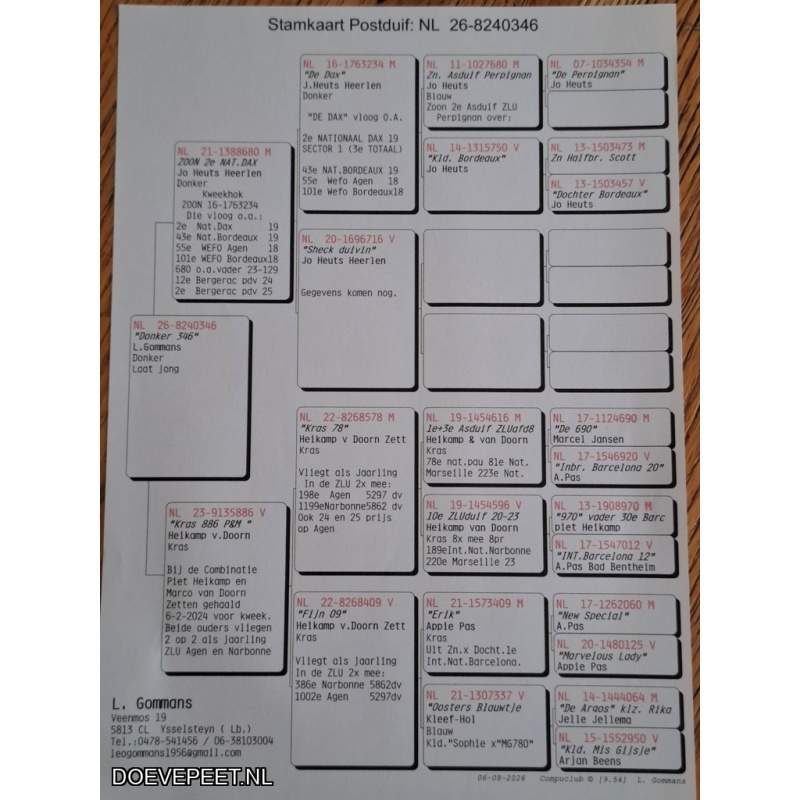 Stamkaart Postduif: NL 26-8240346
NL 26-8240346
"Donker 346"
L.Gommans
Donker
Laat jong
NL 21-1388680 M
ZOON 2e NAT.DAX
Jo Heuts Heerlen
Donker
Kweekhok
ZOON 16-1763234
Die vloog o.a.:
2e Nat.Dax 19
43e Nat.Bordeaux 19
55e WEFO Agen 18
101e WEFO Bordeaux18
680 o.a.vader 23-129
12e Bergerac pdv 24
2e Bergerac pdv 25
NL 23-9135886 V
"Kras 886 P&M "
Heikamp v.Doorn
Kras
Bij de Combinatie
Piet Heikamp en
Marco van Doorn
Zetten gehaald
6-2-2024 voor kweek.
Beide ouders vliegen
2 op 2 als jaarling
ZLU Agen en Narbonne
NL 16-1763234 M
"De Dax"
J.Heuts Heerlen
Donker
"DE DAX" vloog O.A.
2e NATIONAAL DAX 19
SECTOR 1 (3e TOTAAL)
43e NAT.BORDEAUX 19
55e Wefo Agen 18
101e Wefo Bordeaux18
NL 20-1696716 V
"Sheck duivin"
Jo Heuts Heerlen
Gegevens komen nog.
NL 22-8268578 M
"Kras 78"
Heikamp v Doorn Zett
Kras
Vliegt als Jaarling
In de ZLU 2x mee:
198e Agen 5297 dv
1199eNarbonne5862 dv
Ook 24 en 25 prijs
op Agen
NL 22-8268409 V
"Fijn 09"
Heikamp v.Doorn Zett
Kras
Vliegt als Jaarling
In de ZLU 2x mee:
386e Narbonne 5862dv
1002e Agen 5297dv
NL 11-1027680 M
Zn. Asduif Perpignan
Jo Heuts
Blauw
Zoon 2e Asduif ZLU
Perpignan over:
NL 14-1315750 V
"Kld. Bordeaux"
Jo Heuts
NL 19-1454616 M
1e+3e Asduif ZLUafd8
Heikamp & van Doorn
Kras
78e nat.pau 81e Nat.
Marseille 223e Nat.
NL 19-1454596 V
10e ZLUduif 20-23
Heikamp van Doorn
Kras 8x mee 8pr
189eInt.Nat.Narbonne
220e Marseille 23
NL 21-1573409 M
"Erik"
Appie Pas
Kras
Uit Zn.x Docht.1e
Int.Nat.Barcelona.
NL 21-1307337 V
"Oosters Blauwtje
Kleef-Hol
Blauw
Kld."Sophie x"MG780"
NL 07-1034354 M
"De Perpignan"
Jo Heuts
NL 13-1503473 M
Zn Halfbr. Scott
NL 13-1503457 V
"Dochter Bordeaux"
Jo Heuts
NL 17-1124690 M
"De 690"
Marcel Jansen
NL 17-1546920 V
"Inbr. Barcelona 20"
A.Pas
NL 13-1908970 M
"970" vader 30e Barc
piet Heikamp
NL 17-1547012 V
"INT.Barcelona 12"
A.Pas Bad Bentheim
NL 17-1262060 M
"New Special"
A.Pas
NL 20-1480125 V
"Marvelous Lady"
Appie Pas
NL 14-1444064 M
"De Argos" klz. Rika
Jelle Jellema
NL 15-1552950 V
"Kld. Mis Gijsje"
Arjan Beens
L. Gommans
Veenmos 19
5813 CL Ysselsteyn ( Lb.)
Tel.:0478-541456 / 06-38103004
leogommans1956@gmail.com
06-08-2026 Compuclub © [9.54] L. Gommans
DOEVEPEET.NL